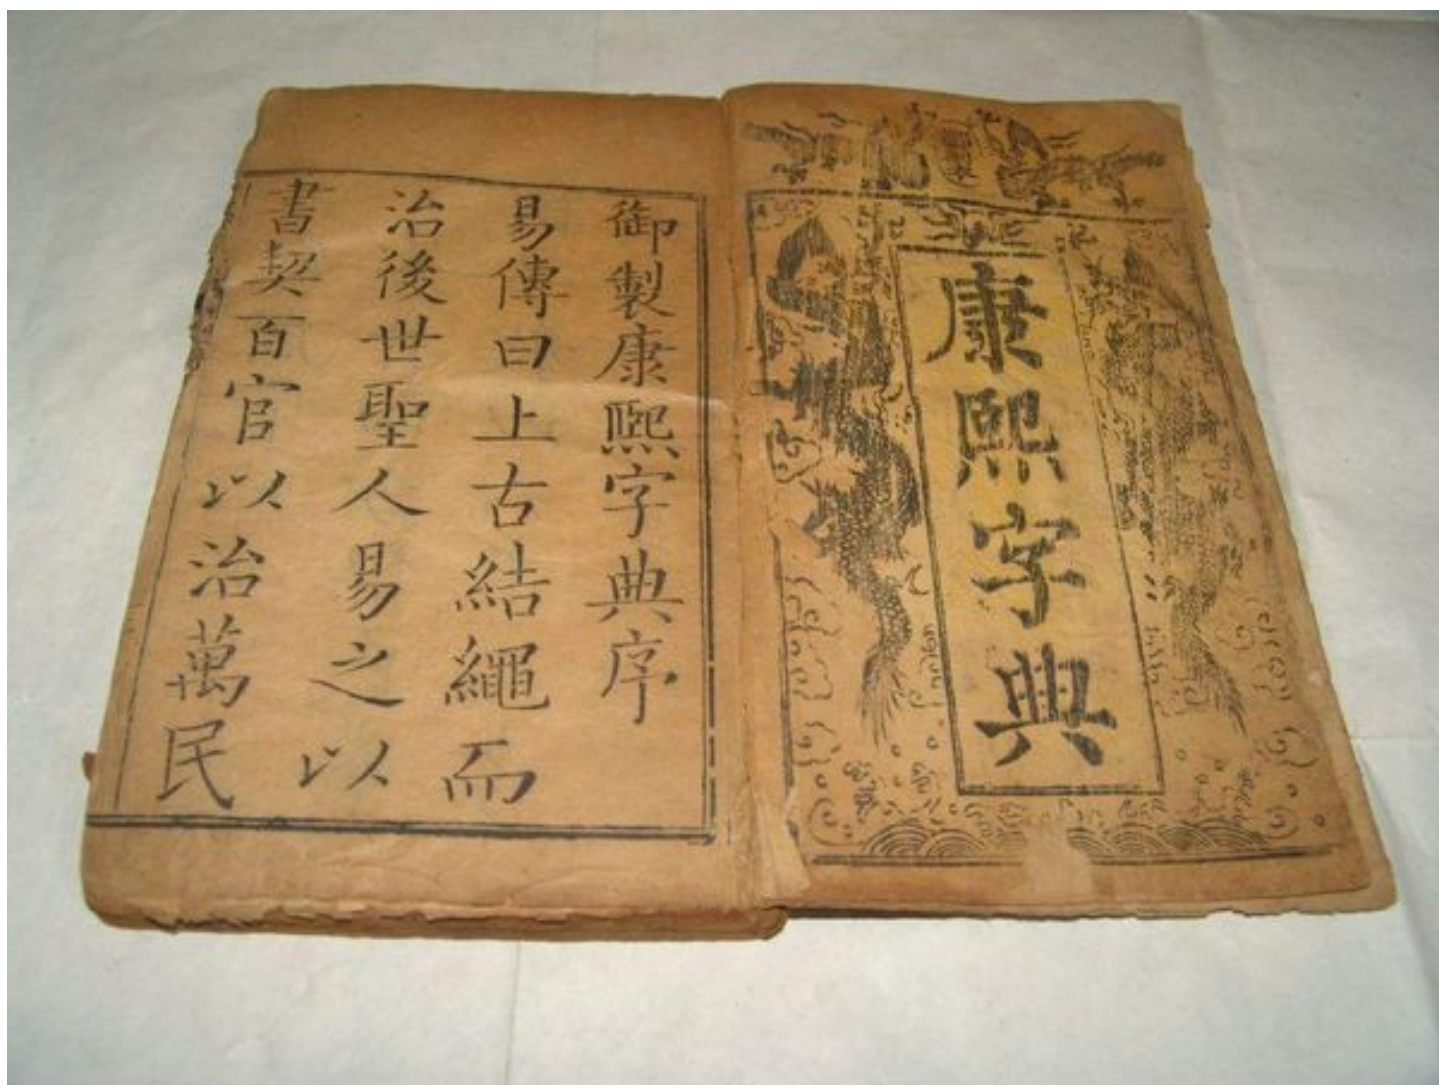 康熙字典
御製康熙字典序
易傳曰上古結繩而
治後世聖人易之以
書契百官以治萬民